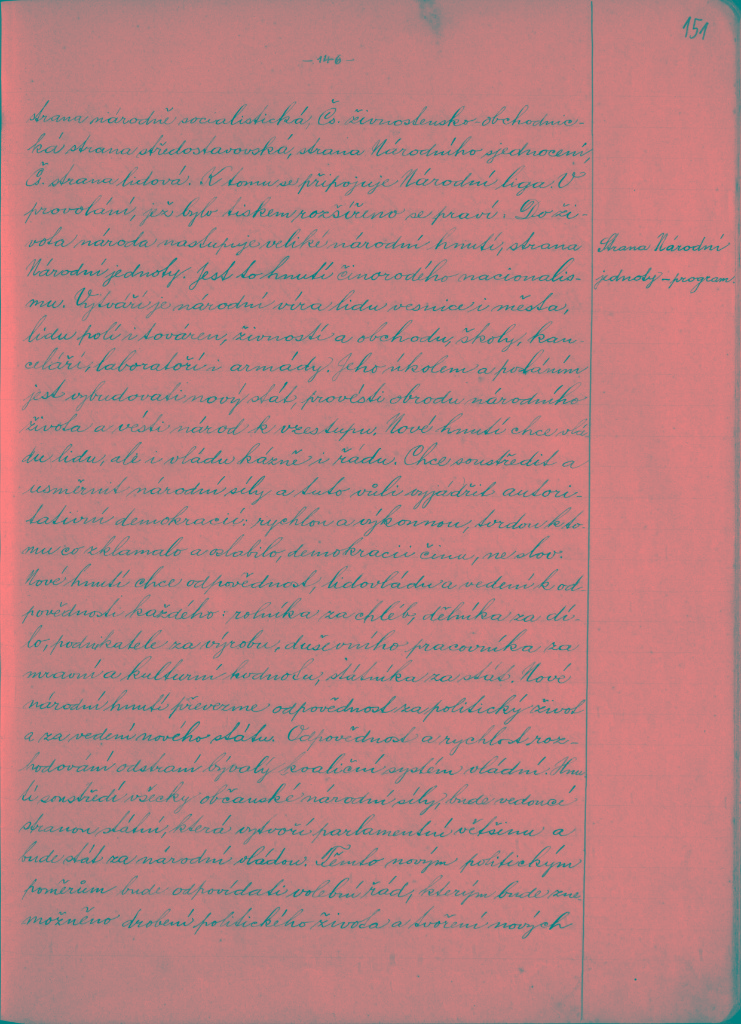 151
- 146 -
strana národně socialistická, Čs. živnostensko-obchodnic-
ká strana středostavovská, strana Národního sjednocení,
Čs. strana lidová. K tomu se připojuje Národní liga. V
provolání, jež bylo tiskem rozšířeno se praví: Do ži-
vota národa nastupuje veliké národní hnutí, strana
Strana Národní
Národní jednoty. Jest to hnutí činorodého nacionalis-
jednoty - program.
mu. Vytváří je národní víra lidu vesnice i města,
lidu polí i továren, živností a obchodu, školy, kan-
celáří, laboratoří i armády. Jeho úkolem a posláním
jest vybudovati nový stát, provésti obrodu národního
života a vésti národ k vzestupu. Nové hnutí chce vlá-
du lidu, ale i vládu kázně i řádu. Chce soustředit a
usměrnit národní síly a tuto vůli vyjádřit autori-
tativní demokracií: rychlou a výkonnou, tvrdou k to-
mu co zklamalo a oslabilo, demokracii činu, ne slov.
Nové hnutí chce odpovědnost, lidovládu a vedení k od-
povědnosti každého: rolníka za chléb, dělníka za dí-
lo, podnikatele za výrobu, duševního pracovníka za
mravní a kulturní hodnotu, státníka za stát. Nové
národní hnutí převezme odpovědnost za politický život
a za vedení nového státu. Odpovědnost a rychlost roz-
hodování odstraní bývalý koaliční systém vládní. Hnu-
tí soustředí všecky občanské národní síly, bude vedoucí
stranou státní, která vytvoří parlamentní většinu a
bude stát za národní vládou. Těmto novým politickým
poměrům bude odpovídati volební řád, kterým bude zne-
možněno drobení politického života a tvoření nových